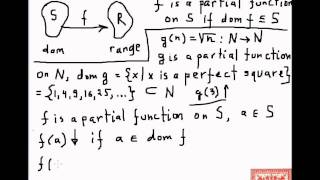 f is a partial function
on S if dom f ⊆ S
S f R
dom range
g(n) = √n : N → N
g is a partial function
on N, dom g = {x | x is a perfect square}
= {1, 4, 9, 16, 25, ...} ⊂ N g(3)↑
f is a partial function on S, a ∈ S
f(a)↓ if a ∈ dom f
f(